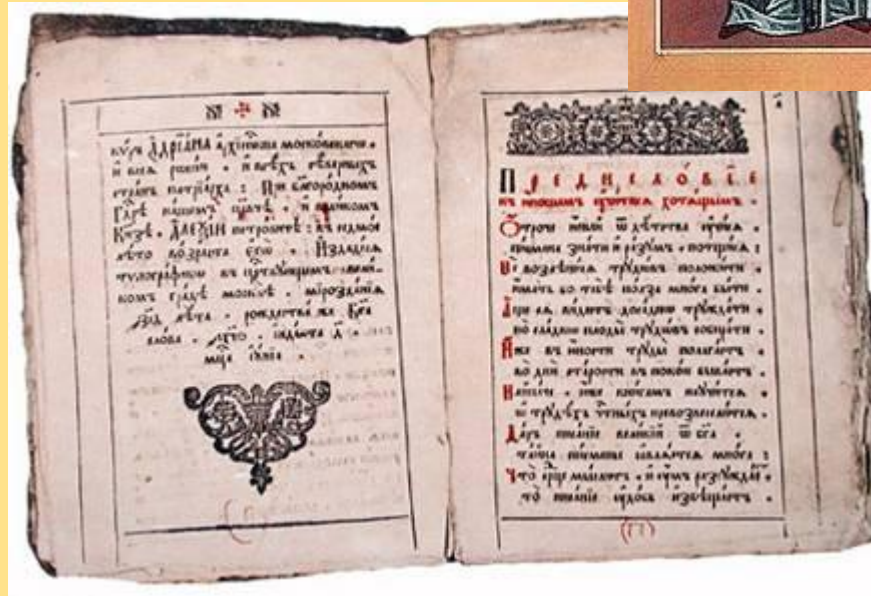 кѵ́ръ А҆дрїа́на а҆рхїепⷭ҇кпа моско́вскагѡ .
и҆ всеѧ̀ рѡссі́и . и҆ всѣ́хъ сѣ́верныхъ
стра́нъ патрїа́рха : При бл҃горо́дномъ
Гдⷭ҇рѣ на́шемъ цр҃вчѣ . и҆ вели́комъ
Кнѕ҃ѣ . А҆ЛЕѮІ́И петро́вичѣ : въ седмо́е
лѣ́то во́зраста є҆гѡ̀ . И҆здаде́сѧ
тѵпогра́фїею въ црⷭ҇твующемъ вели́-
комъ гра́дѣ москвѣ̀ . мїрозда́нїѧ
҂зс҃д лѣ́та . рождества́ же Бг҃а
сло́ва . і҆ндїкта д҃ .
мцⷭ҇а і҆ꙋ́нїа .
ПРЕДИСЛО́ВІЕ
къ ю҆́ношамъ ᲂу҆чи́тисѧ хотѧ́щымъ .
Ѻ҆́троче ю҆́ный ѿ дѣ́тства ᲂу҆чи́сѧ .
письмена̀ зна́ти и҆ ра́зумъ . потщи́сѧ :
Не возлѣни́сѧ трудѡ́въ положи́ти .
и҆́мать бо тебѣ̀ по́лза мно́га бы́ти .
А҆́ще сѧ ви́дитъ доса́дно тружда́ти .
но сла́дко плоды̀ трудѡ́въ собира́ти .
И҆́же въ ю҆́ности труды̀ полага́етъ .
во дни̑ ста́рости въ поко́и быва́етъ .
Наипа́че . и҆́же кни́гамъ наꙋчи́тсѧ .
въ трудѣ́хъ чⷭ҇тныхъ превозноси́тсѧ .
Да́ръ писа́нїе вели́кїй ѿ бг҃а .
та́йна писме́ны ꙗ҆влѧ́етсѧ мно́га :
Что̀ срⷣце мы́слитъ . и҆ ᲂу҆́мъ разсꙋжда́етъ
то̀ писа́нїе ᲂу҆до́бь и҆звѣща́етъ .